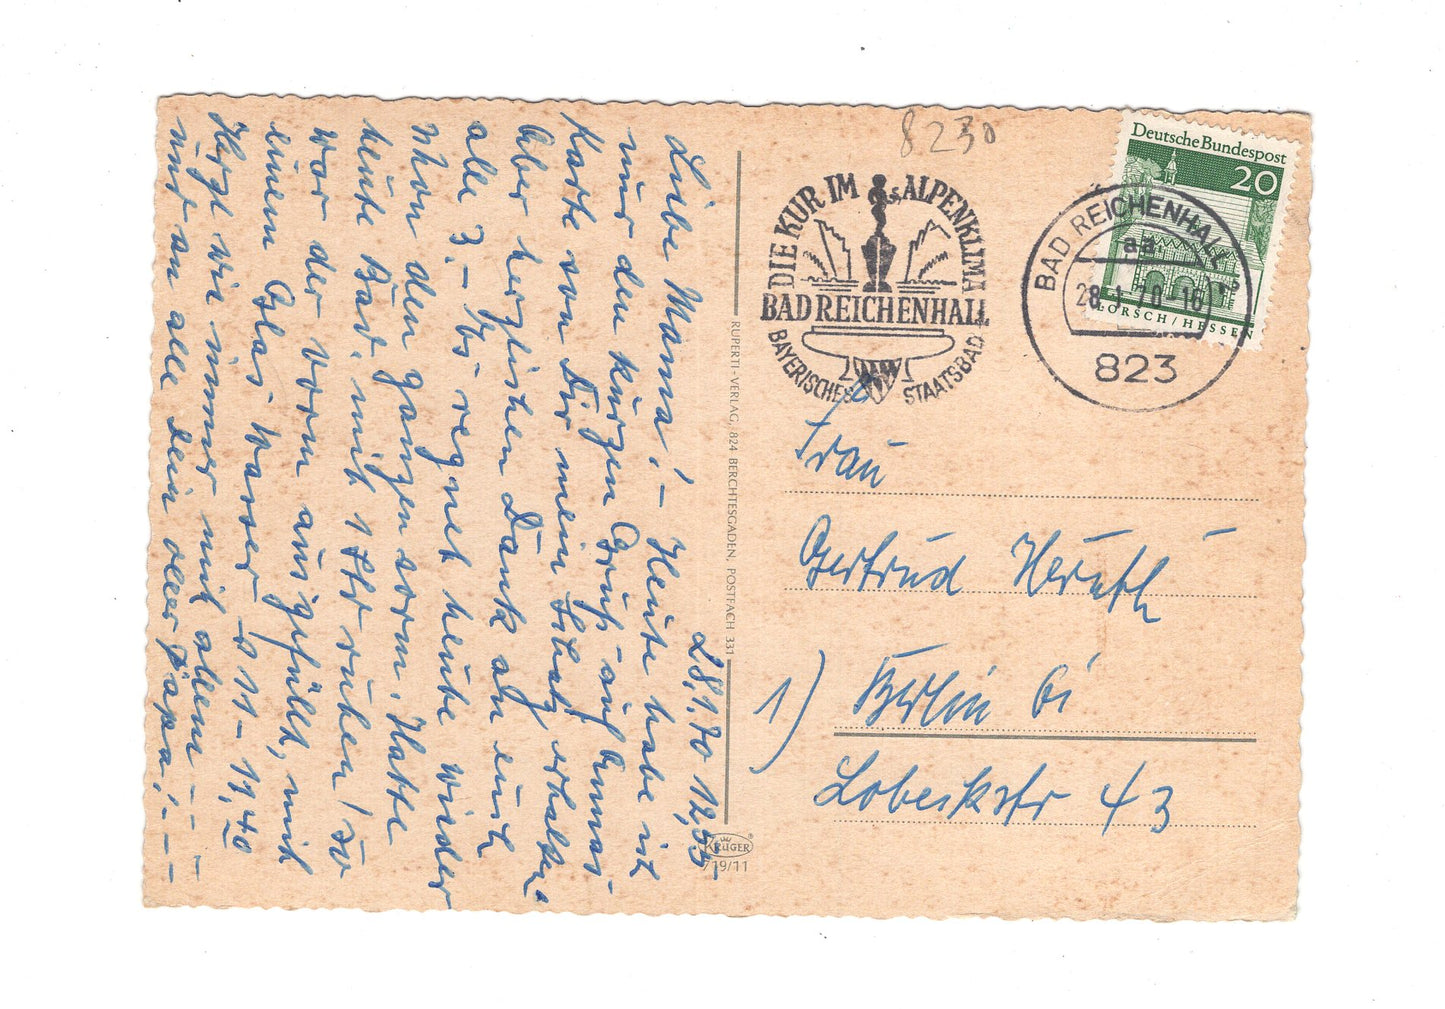 28.1.70 12,55
Liebe Mama! – Heute habe ich
nur den kurzen Gruß auf Annas
Karte von Dir mein Schatz erhalten
Aber herzlichen Dank an euch
alle 3. – Es regnet heute wieder
schon den ganzen vorm. Hatte
heute Bad, mit 1 Std ruhen! So
war der vorm ausgefüllt, mit
einem Glas Wasser 11 – 11,40
Herzl wie immer mit allem –
nur an alle Dein oller Papa! – –
RUPERTI-VERLAG, 824 BERCHTESGADEN, POSTFACH 331
KRÜGER
719/11
8230
DIE KUR IM ALPENKLIMA
BAD REICHENHALL
BAYERISCHES STAATSBAD
Deutsche Bundespost
20
LORSCH/HESSEN
BAD REICHENHALL
aa
28.1.70-16
823
Frau
Gertrud
1) Berlin 61
Lobeckstr 43